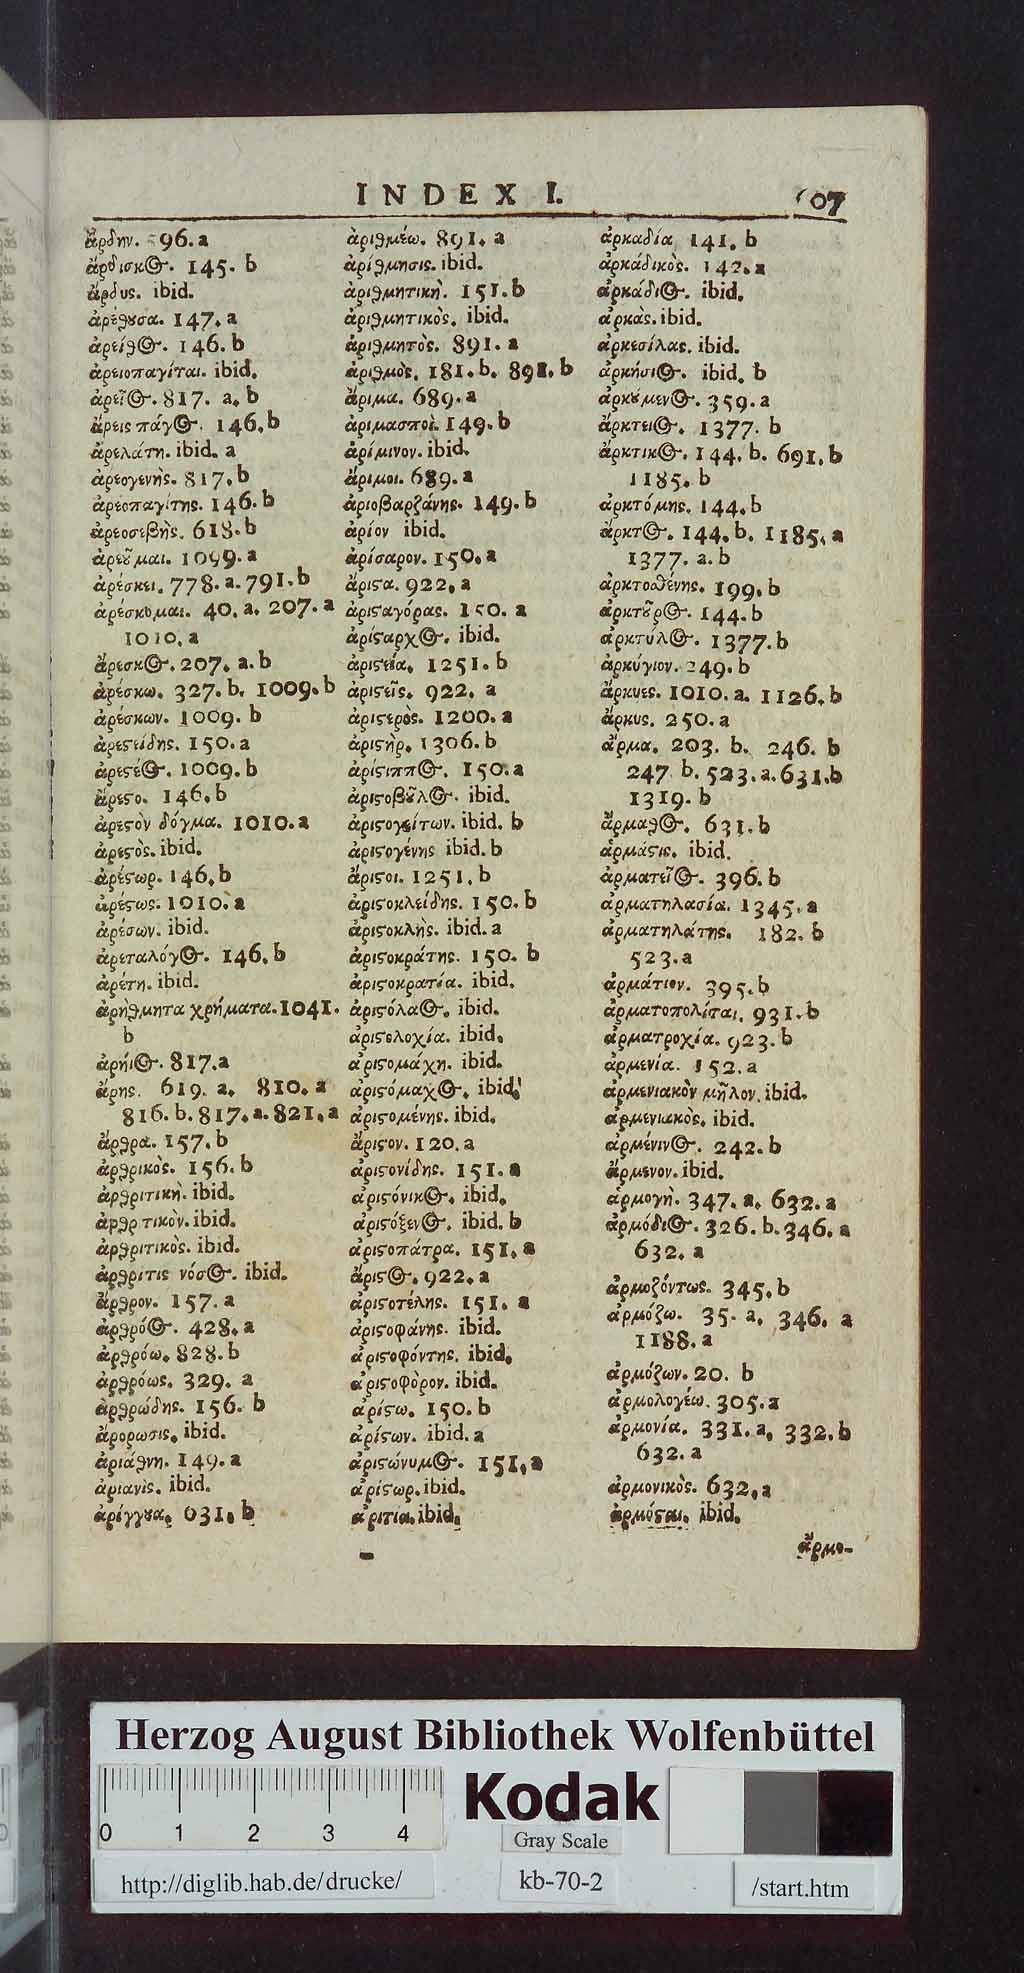 INDEX I.
07
ἄρδην. 96. a
ἄρδισκος. 145. b
ἄρδυς. ibid.
ἀρέθουσα. 147. a
ἀρείθος. 146. b
ἀρειοπαγίται. ibid.
ἀρεῖος. 817. a. b
ἄρεις πάγος. 146. b
ἀρελάτη. ibid. a
ἀρεογενὴς. 817. b
ἀρεοπαγίτης. 146. b
ἀρεοσεβὴς. 618. b
ἀρεοῦμαι. 1099. a
ἀρέσκει. 778. a. 791. b
ἀρέσκομαι. 40. a. 207. a
1010. a
ἄρεσκος. 207. a. b
ἀρέσκω. 327. b. 1009. b
ἀρέσκων. 1009. b
ἀρεστείδης. 150. a
ἀρεστέος. 1009. b
ἄρεστο. 146. b
ἀρεστὸν δόγμα. 1010. a
ἀρεστὸς. ibid.
ἀρέστωρ. 146. b
ἀρέστως. 1010. a
ἀρέσων. ibid.
ἀρεταλόγος. 146. b
ἀρέτη. ibid.
ἀρήθμητα χρήματα. 1041.
b
ἀρήιος. 817. a
ἄρης. 619. a. 810. a
816. b. 817. a. 821. a
ἄρθρα. 157. b
ἀρθρικὸς. 156. b
ἀρθριτικὴ. ibid.
ἀρθρ τικὸν. ibid.
ἀρθριτικὸς. ibid.
ἀρθρίτις νόσος. ibid.
ἄρθρον. 157. a
ἀρθρόος. 428. a
ἀρθρόω. 828. b
ἀρθρόως. 329. a
ἀρθρώδης. 156. b
ἄρορωσις. ibid.
ἀριάθνη. 149. a
ἀριανὶς. ibid.
ἀρίγγουα. 031. b
ἀριθμέω. 891. a
ἀρίθμησις. ibid.
ἀριθμητικὴ. 151. b
ἀριθμητικὸς. ibid.
ἀριθμητὸς. 891. a
ἀριθμὸς. 181. b. 891. b
ἄριμα. 689. a
ἀριμασποὶ. 149. b
ἀρίμινον. ibid.
ἄριμοι. 689. a
ἀριοβαρζάνης. 149. b
ἀρίον ibid.
ἀρίσαρον. 150. a
ἄριστα. 922. a
ἀρισταγόρας. 150. a
ἀρίσταρχος. ibid.
ἀριστεία. 1251. b
ἀριστεῖς. 922. a
ἀριστερὸς. 1200. a
ἀριστὴρ. 1306. b
ἀρίστιππος. 150. a
ἀριστοβοῦλος. ibid.
ἀριστογείτων. ibid. b
ἀριστογένης ibid. b
ἄριστοι. 1251. b
ἀριστοκλείδης. 150. b
ἀριστοκλὴς. ibid. a
ἀριστοκράτης. 150. b
ἀριστοκρατία. ibid.
ἀριστόλαος. ibid.
ἀριστολοχία. ibid.
ἀριστομάχη. ibid.
ἀριστόμαχος. ibid.
ἀριστομένης. ibid.
ἄριστον. 120. a
ἀριστονίδης. 151. a
ἀριστόνικος. ibid.
ἀριστόξενος. ibid. b
ἀριστοπάτρα. 151. a
ἄριστος. 922. a
ἀριστοτέλης. 151. a
ἀριστοφάνης. ibid.
ἀριστοφόντης. ibid.
ἀριστοφόρον. ibid.
ἀρίστω. 150. b
ἀρίστων. ibid. a
ἀριστώνυμος. 151. a
ἀρίστωρ. ibid.
ἀριτία. ibid.
ἀρκαδία 141. b
ἀρκάδικὸς. 142. a
ἀρκάδιος. ibid.
ἀρκὰς. ibid.
ἀρκεσίλας. ibid.
ἀρκήσιος. ibid. b
ἀρκούμενος. 359. a
ἄρκτειος. 1377. b
ἄρκτικος. 144. b. 691. b
1185. b
ἀρκτόμης. 144. b
ἄρκτος. 144. b. 1185. a
1377. a. b
ἀρκτοσθένης. 199. b
ἀρκτοῦρος. 144. b
ἀρκτύλος. 1377. b
ἀρκύγιον. 249. b
ἄρκυες. 1010. a. 1126. b
ἄρκυς. 250. a
ἅρμα. 203. b. 246. b
247 b. 523. a. 631. b
1319. b
ἅρμαθος. 631. b
ἁρμάστις. ibid.
ἁρματεῖος. 396. b
ἁρματηλασία. 1345. a
ἁρματηλάτης. 182. b
523. a
ἁρμάτιον. 395. b
ἁρματοπολίται. 931. b
ἁρματροχία. 923. b
ἀρμενία. 152. a
ἀρμενιακὸν μῆλον. ibid.
ἀρμενιακὸς. ibid.
ἀρμένινος. 242. b
ἄρμενον. ibid.
ἁρμογὴ. 347. a. 632. a
ἁρμόδιος. 326. b. 346. a
632. a
ἁρμοζόντως. 345. b
ἁρμόζω. 35. a. 346. a
1188. a
ἁρμόζων. 20. b
ἁρμολογέω. 305. a
ἁρμονία. 331. a. 332. b
632. a
ἁρμονικὸς. 632. a
ἁρμόσται. ibid.
ἅρμο-
Herzog August Bibliothek Wolfenbüttel
0 1 2 3 4
Kodak
Gray Scale
http://diglib.hab.de/drucke/
kb-70-2
/start.htm